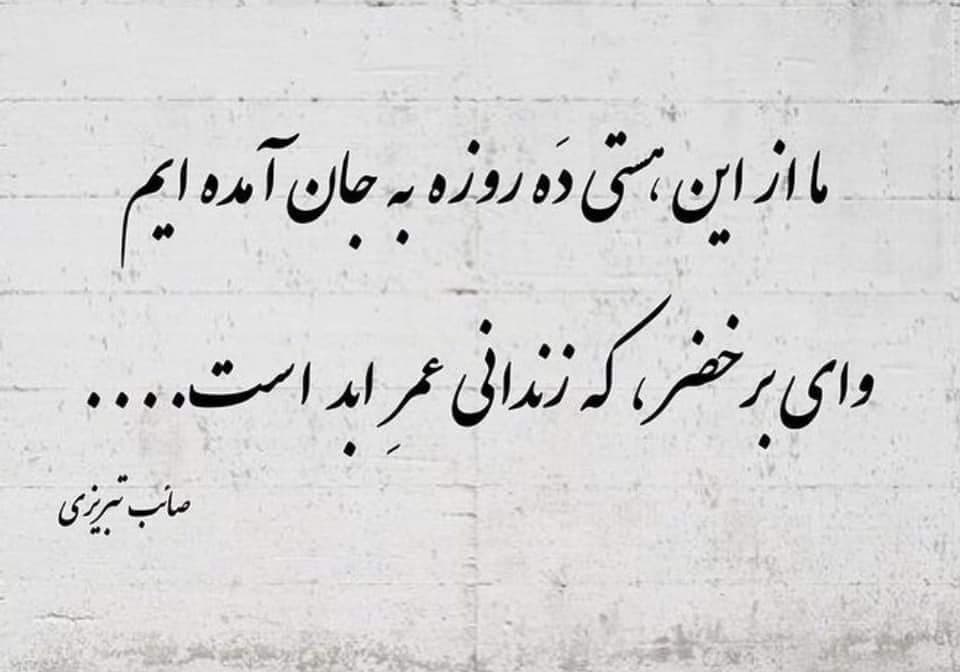 ما از این هستی دَه روزه به جان آمده ایم
وای بر خضر، که زندانی عمرِ ابد است....
صائب تبریزی